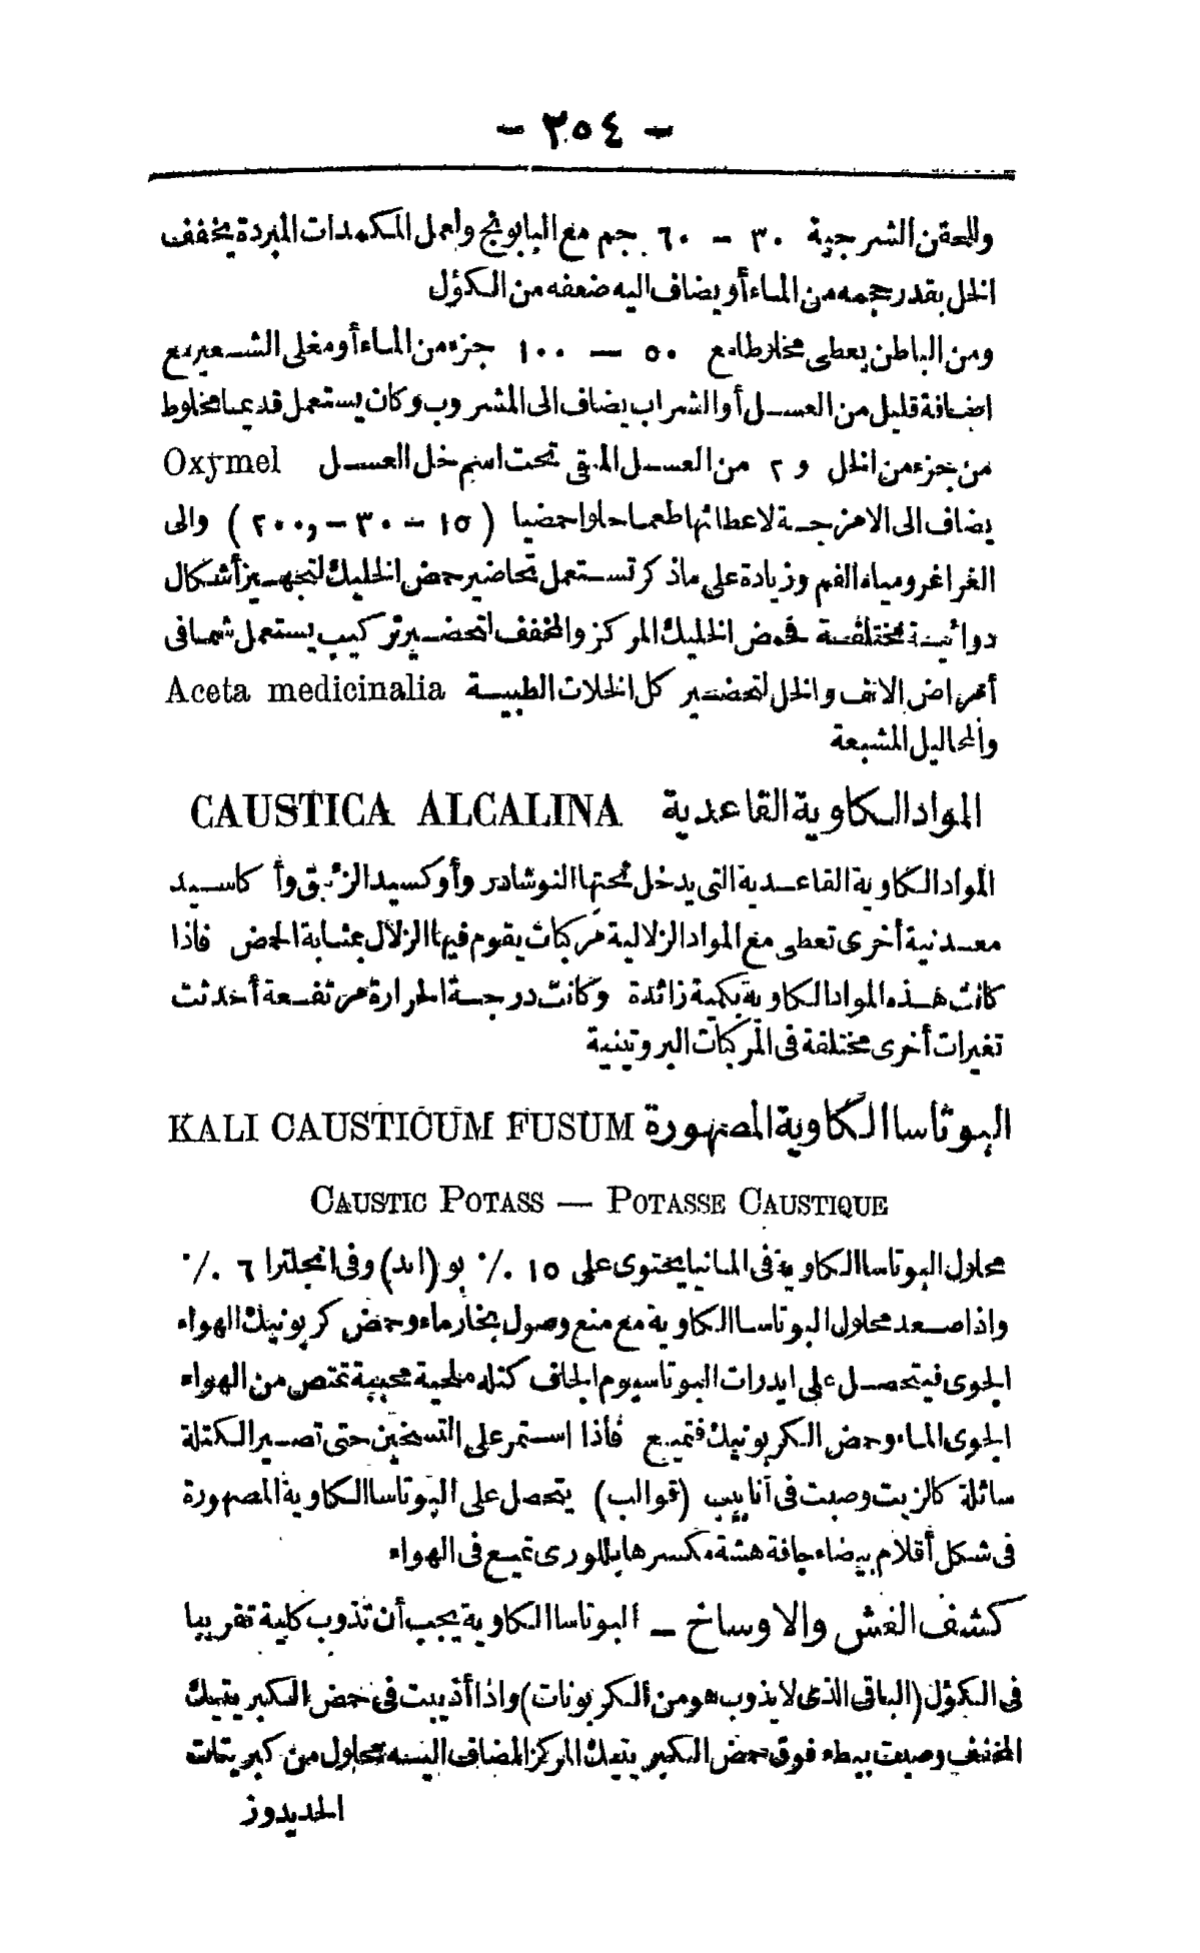 - ٣٥٤ -
وللحقن الشرجية ٣٠ - ٦٠ جم مع البابونج ولعمل المكمدات المبردة يخفف
الخل بقدر حجمه من الماء أو يضاف اليه ضعفه من الكؤل
ومن الباطن يعطى مخلوطا مع ٥٠ — ١٠٠ جزء من الماء أو مغلى الشعير مع
اضافة قليل من العسل أو الشراب يضاف الى المشروب وكان يستعمل قديما مخلوط
من جزء من الخل و ٢ من العسل المنقى تحت اسم خل العسل Oxymel
يضاف الى الامزجة لاعطائها طعما حلوا حمضيا (١٥ - ٣٠ - ٢٠٠,٠) والى
الغراغر ومياه الفم وزيادة على ماذكر تستعمل تحاضير حمض الخليك لتجهيز أشكال
دوائية مختلفة فحمض الخليك المركز والمخفف لتحضير تركيب يستعمل شما فى
أمراض الانف والخل لتحضير كل الخلات الطبية Aceta medicinalia
والمحاليل المشبعة
المواد الكاوية القاعدية CAUSTICA ALCALINA
المواد الكاوية القاعدية التى يدخل تحتها النوشادر وأوكسيد الزئبق وأكاسيد
معدنية أخرى تعطى مع المواد الزلالية مركبات يقوم فيها الزلال بمثابة الحمض فاذا
كانت هذه المواد الكاوية بكمية زائدة وكانت درجة الحرارة مرتفعة أحدثت
تغيرات أخرى مختلفة فى المركبات البروتينية
البوتاسا الكاوية المصهورة KALI CAUSTICUM FUSUM
CAUSTIC POTASS — POTASSE CAUSTIQUE
محلول البوتاسا الكاوية فى المانيا يحتوى على ١٥ ٪ بو (اىد) وفى انجلترا ٦ ٪
واذا صعد محلول البوتاسا الكاوية مع منع وصول بخار ماء وحمض كربونيك الهواء
الجوى فيتحصل على ايدرات البوتاسيوم الجاف كتله ملحية محببة تمتص من الهواء
الجوى الماء وحمض الكربونيك فتميع فاذا استمر على التسخين حتى تصير الكتلة
سائلة كالزيت وصبت فى أنابيب (قوالب) يتحصل على البوتاسا الكاوية المصهورة
فى شكل أقلام بيضاء جافة هشة مكسرها بللورى تميع فى الهواء
كشف الغش والاوساخ - البوتاسا الكاوية يجب أن تذوب كلية تقريبا
فى الكؤل (الباقى الذى لايذوب هو من الكربونات) واذا أذيبت فى حمض الكبريتيك
المخفف وصبت ببطء فوق حمض الكبريتيك المركز المضاف اليه محلول من كبريتات
الحديدوز